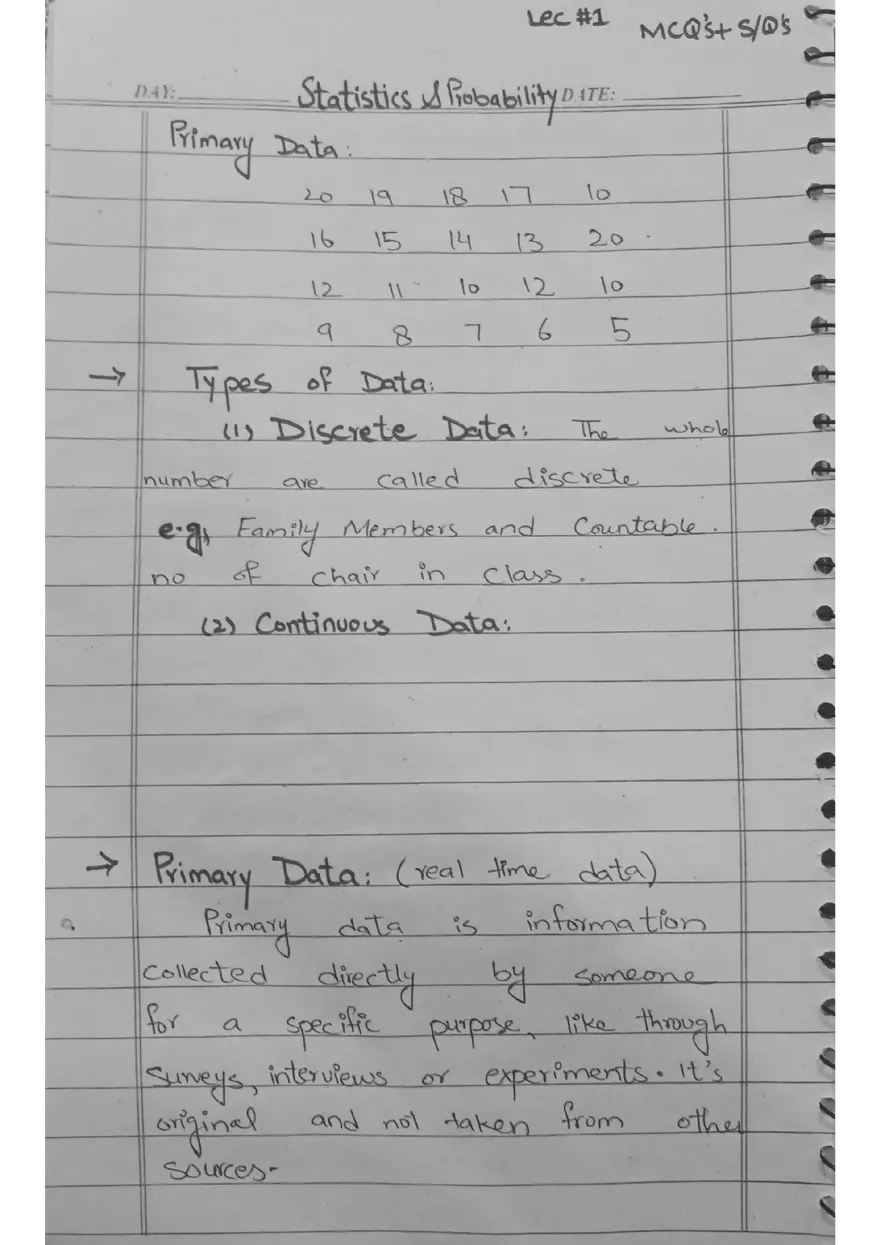 Lec #1 MCQ's + S/Q's
DAY: Statistics & Probability DATE:
Primary Data:
20 19 18 17 10
16 15 14 13 20
12 11 10 12 10
9 8 7 6 5
→ Types of Data:
(1) Discrete Data: The whole
number are called discrete
e.g, Family Members and Countable.
no of chair in class.
(2) Continuous Data:
→ Primary Data: (real time data)
Primary data is information
collected directly by someone
for a specific purpose, like through
surveys, interviews or experiments. It's
original and not taken from other
sources.